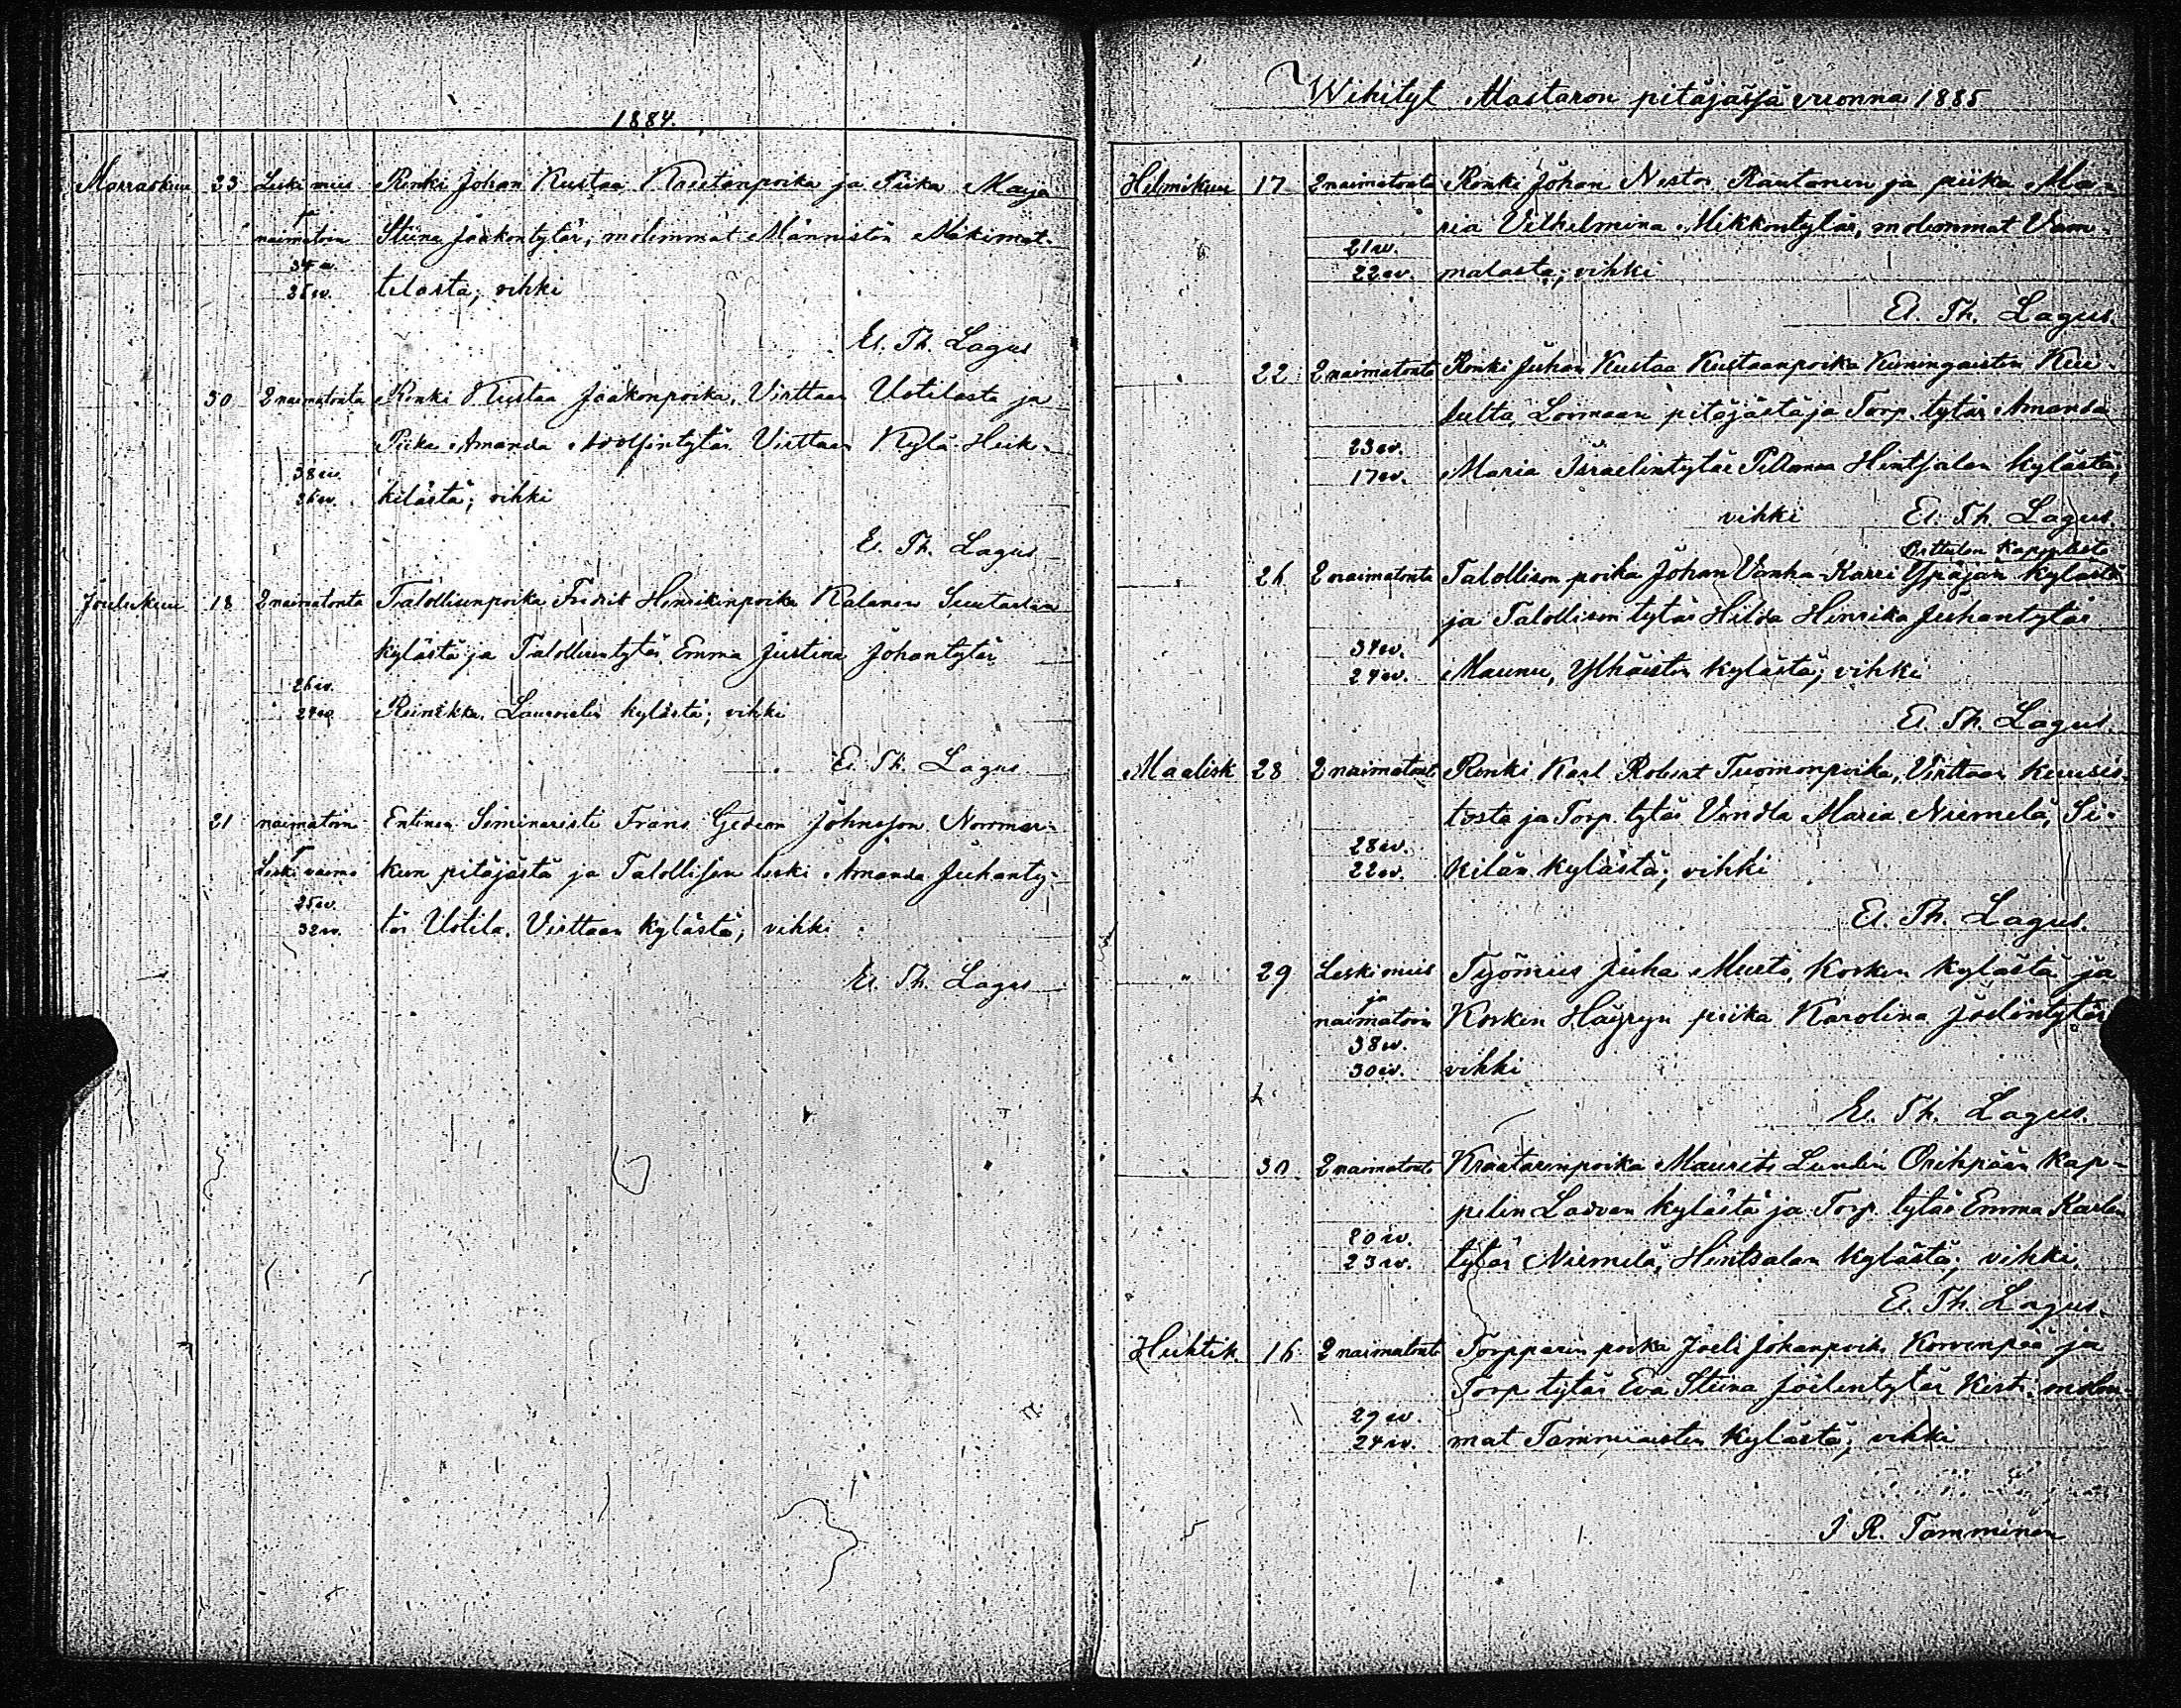 1884.
Marraskuu 23 Leski mies Renki Johan Kustaa Kustanpoika ja Piika Maija
ja naimatoin Stiina Jaakontytär, molemmat Männistön Mäkimat-
34 v.
25 v. tilasta; vihki
El. Th. Lagus
30 2 naimatonta Renki Kustaa Jaakonpoika, Virttaan Uotilasta ja
Piika Amanda Adolfintytär Virttaan Kylä-Heik-
38 v.
36 v. kilästä; vihki
El. Th. Lagus
Joulukuu 18 2 naimatonta Talollisenpoika Fredrik Henrikinpoika Kalanen Suutarlan
kylästä ja Talollisentytär Emma Justina Johantytär
26 v.
24 v. Reinikka, Lauroisten kylästä; vihki
El. Th. Lagus
21 naimatoin Entinen Seminaristi Frans Gedeon Johnsson Norrmar-
ja Leski vaimo kun pitäjästä ja Talollisen leski Amanda Juhanty-
25 v.
32 v. tär Uotila, Virttaan kylästä; vihki
El. Th. Lagus
Wihityt Mastaron pitäjässä vuonna 1885
Helmikuu 17 2 naimatonta Renki Johan Nestor Rautanen ja piika Ma-
ria Vilhelmina Mikkontytär, molemmat Vam-
21 v.
22 v. malasta; vihki
El. Th. Lagus.
" 22 2 naimatonta Renki Juhan Kustaa Kustaanpoika Kuningaisten
sulta, Loimaan pitäjästä ja Torp. tytär Amanda
23 v.
17 v. Maria Israelintytär Hintsalan kylästä;
vihki El. Th. Lagus.
Perttulan kappelista
" 26 2 naimatonta Talollisen poika Johan Vanha-Karri Ypäjän kylästä
ja Talollisen tytär Hilda Henrika Juhantytär
34 v.
24 v. Maunu, Ylhäisten kylästä; vihki
El. Th. Lagus.
Maalisk 28 2 naimatont. Renki Karl Robert Tuomonpoika, Virttaan Kuusis-
tosta ja Torp. tytär Vendla Maria Niemelä, Si-
28 v.
22 v. kilän kylästä; vihki
El. Th. Lagus.
" 29 Leski mies Työmies Juha Musto, Korken kylästä ja
ja naimatoin Korken Häyryn piika Karolina Joelintytär
38 v.
30 v. vihki
El. Th. Lagus.
" 30 2 naimatont. Kraatarinpoika Maurits Lundén Oripään kap-
pelin Latvan kylästä ja Torp. tytär Emma Karlen
20 v.
23 v. tytär Niemelä, Hintsalan kylästä; vihki.
El. Th. Lagus.
Huhtik. 16 2 naimatont. Torpparin poika Joeli Johanpoika Korvenpää ja
Torp. tytär Eva Stiina Joelintytär molem-
29 v.
24 v. mat Tammiaisten kylästä; vihki
J R. Tamminen